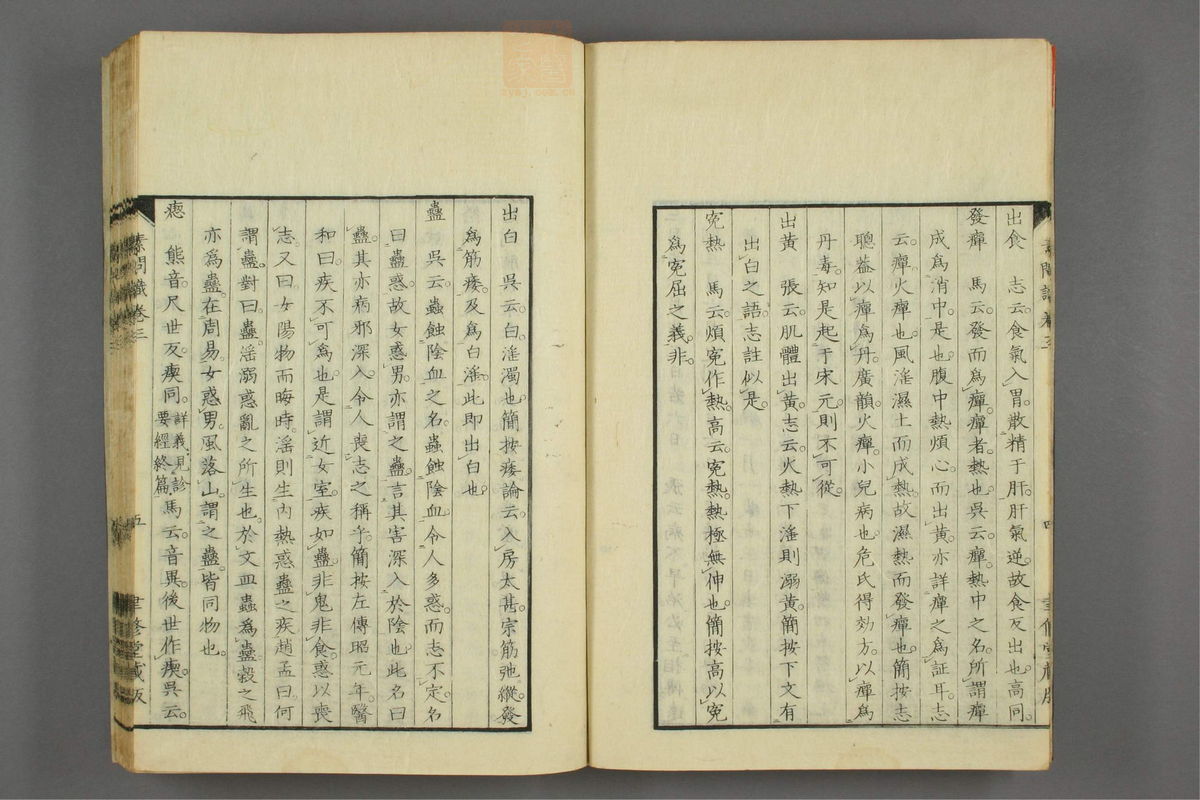 出食　志云食氣入胃散精于肝肝氣逆故食反出也高同
發癉　馬云發而爲癉癉者熱也吳云癉熱中之名所謂癉
成爲消中是也腹中熱煩心而出黃亦詳癉之爲証耳志
云癉火癉也風淫濕土而成熱故濕熱而發癉也簡按志
聰葢以癉爲丹廣韻火癉小兒病也危氏得効方以癉爲
丹毒知是起于宋元則不可從
出黃　張云肌體出黃志云火熱下淫則溺黃簡按下文有
出白之語志註似是
冤熱　馬云煩冤作熱高云冤熱熱極無伸也簡按高以冤
爲冤屈之義非
素問識卷三
四
聿修堂藏版
出白　吳云白淫濁也簡按痿論云入房太甚宗筋弛縱發
爲筋痿及爲白淫此即出白也
蠱　吳云蟲蝕陰血之名蟲蝕陰血令人多惑而志不定名
曰蠱惑故女惑男亦謂之蠱言其害深入於陰也此名曰
蠱其亦病邪深入令人喪志之稱乎簡按左傳昭元年醫
和曰疾不可爲也是謂近女室疾如蠱非鬼非食惑以喪
志又曰女陽物而晦時淫則生內熱惑蠱之疾趙孟曰何
謂蠱對曰蠱淫溺惑亂之所生也於文皿蟲爲蠱穀之飛
亦爲蠱在周易女惑男風落山謂之蠱皆同物也
瘛　熊音尺世反瘈同詳義見診要經終篇馬云音異後世作瘈吳云
素問識卷三
五
聿修堂藏版